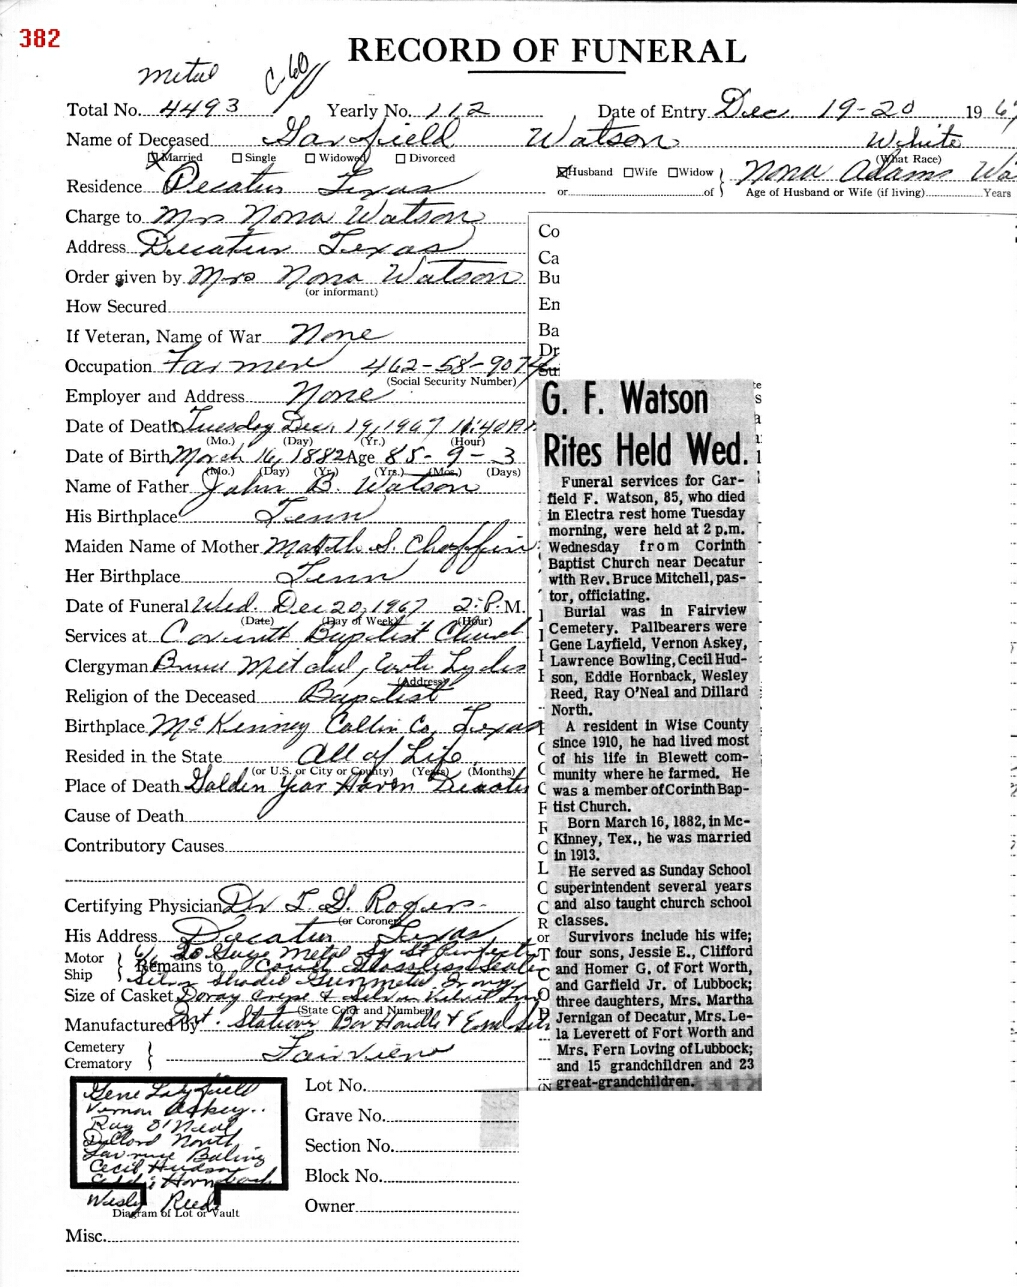 382
RECORD OF FUNERAL
Metal
Total No. 4493 Yearly No. 112 Date of Entry Dec 19-20 196
Name of Deceased Garfield Watson White
Married Single Widowed Divorced (What Race)
Husband Wife Widow Nona Adams
or of Age of Husband or Wife (if living) Years
Residence Decatur Texas
Charge to Mrs Nona Watson
Address Decatur Texas
Order given by Mrs Nona Watson
(or informant)
How Secured
If Veteran, Name of War None
Occupation Farmer 462-58-9074
(Social Security Number)
Employer and Address None
Date of Death Tuesday Dec. 19, 1967
(Mo.) (Day) (Yr.) (Hour)
Date of Birth March 16, 1882 Age 85-9-3
(Mo.) (Day) (Yr.) (Yrs.) (Mos.) (Days)
Name of Father John B. Watson
His Birthplace Tenn
Maiden Name of Mother S. Chaffin
Her Birthplace Tenn
Date of Funeral Wed. Dec 20, 1967 2 P. M.
(Date) (Day of Week) (Hour)
Services at Corinth Baptist Church
Clergyman
(Address)
Religion of the Deceased Baptist
Birthplace McKinney Collin Co, Texas
Resided in the State All of Life
(or U.S. or City or County) (Years) (Months)
Place of Death Golden Year Haven Decatur
Cause of Death
Contributory Causes
Certifying Physician Dr T. G. Rogers
(or Coroner)
His Address Decatur Texas
Motor
Ship Remains to
Size of Casket
(State Color and Number)
Manufactured By
Cemetery
Crematory Fairview
Gene Layfield
Vernon Askey
Ray O'Neal
Dillard North
Lawrence Boling
Cecil Hudson
Eddie Hornback
Wesley Reed
Diagram of Lot or Vault
Lot No.
Grave No.
Section No.
Block No.
Owner
Misc.
Co
Ca
Bu
En
Ba
Dr
G. F. Watson
Rites Held Wed.
Funeral services for Gar-
field F. Watson, 85, who died
in Electra rest home Tuesday
morning, were held at 2 p.m.
Wednesday from Corinth
Baptist Church near Decatur
with Rev. Bruce Mitchell, pas-
tor, officiating.
Burial was in Fairview
Cemetery. Pallbearers were
Gene Layfield, Vernon Askey,
Lawrence Bowling, Cecil Hud-
son, Eddie Hornback, Wesley
Reed, Ray O'Neal and Dillard
North.
A resident in Wise County
since 1910, he had lived most
of his life in Blewett com-
munity where he farmed. He
was a member of Corinth Bap-
tist Church.
Born March 16, 1882, in Mc-
Kinney, Tex., he was married
in 1913.
He served as Sunday School
superintendent several years
and also taught church school
classes.
Survivors include his wife;
four sons, Jessie E., Clifford
and Homer G. of Fort Worth,
and Garfield Jr. of Lubbock;
three daughters, Mrs. Martha
Jernigan of Decatur, Mrs. Le-
la Leverett of Fort Worth and
Mrs. Fern Loving of Lubbock;
and 15 grandchildren and 23
great-grandchildren.